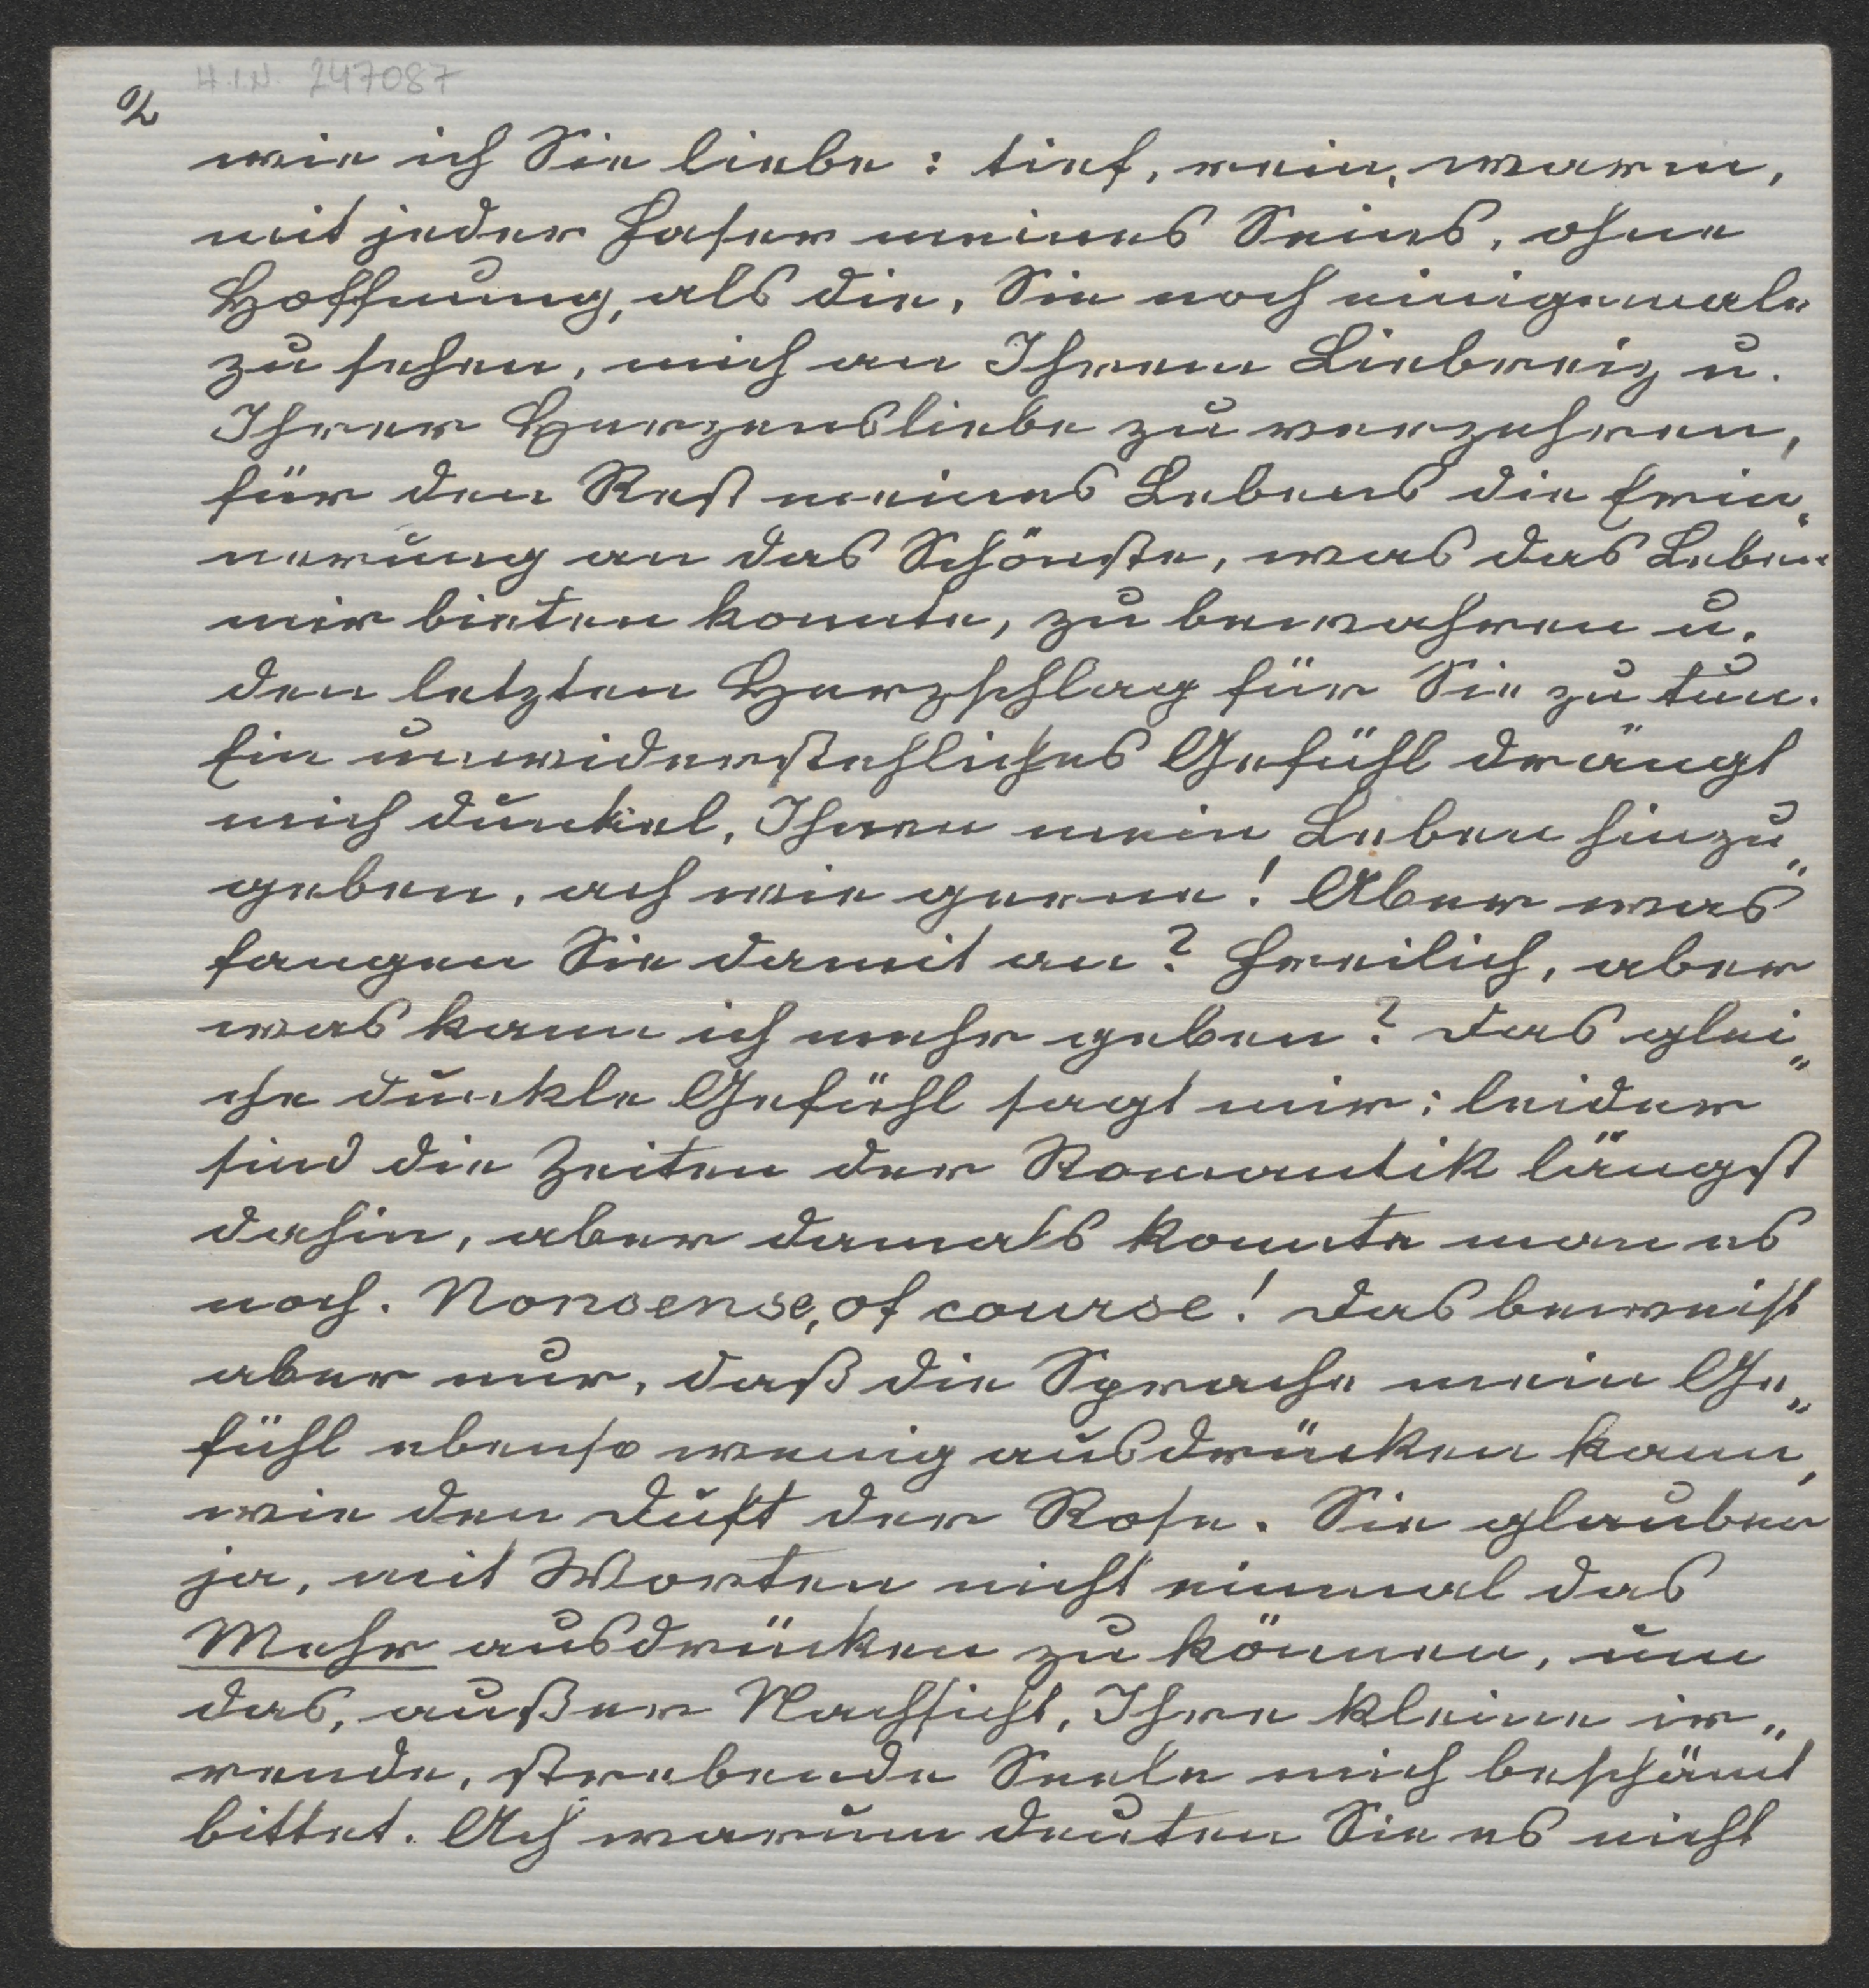 H.I.N. 247087
2
wie ich Sie liebe: tief, rein, warm,
mit jeder Faser meines Seins, ohne
Hoffnung, als die, Sie noch einigemale
zu sehen, mich an Ihrem Liebreiz u.
Ihrer Herzensliebe zu verzehren,
für den Rest meines Lebens die Erin„
nerung an das Schönste, was das Leben
mir bieten konnte, zu bewahren u.
den letzten Herzschlag für Sie zu tun.
Ein unwiderstehliches Gefühl drängt
mich dunkel, Ihnen mein Leben hinzu„
geben, ach wie gerne! Aber was
fangen Sie damit an? Freilich, aber
was kann ich mehr geben? Das glei„
che dunkle Gefühl sagt mir: leider
sind die Zeiten der Romantik längst
dahin, aber damals konnte man es
noch. Nonsense, of course! Das beweist
aber nur, daß die Sprache mein Ge„
fühl ebenso wenig ausdrücken kann,
wie den Duft der Rose. Sie glauben
ja, mit Worten nicht einmal das
Mehr ausdrücken zu können, um
das, außer Nachsicht, Ihre kleine ir„
rende, strebende Seele mich beschämt
bittet. Ach warum deuten Sie es nicht